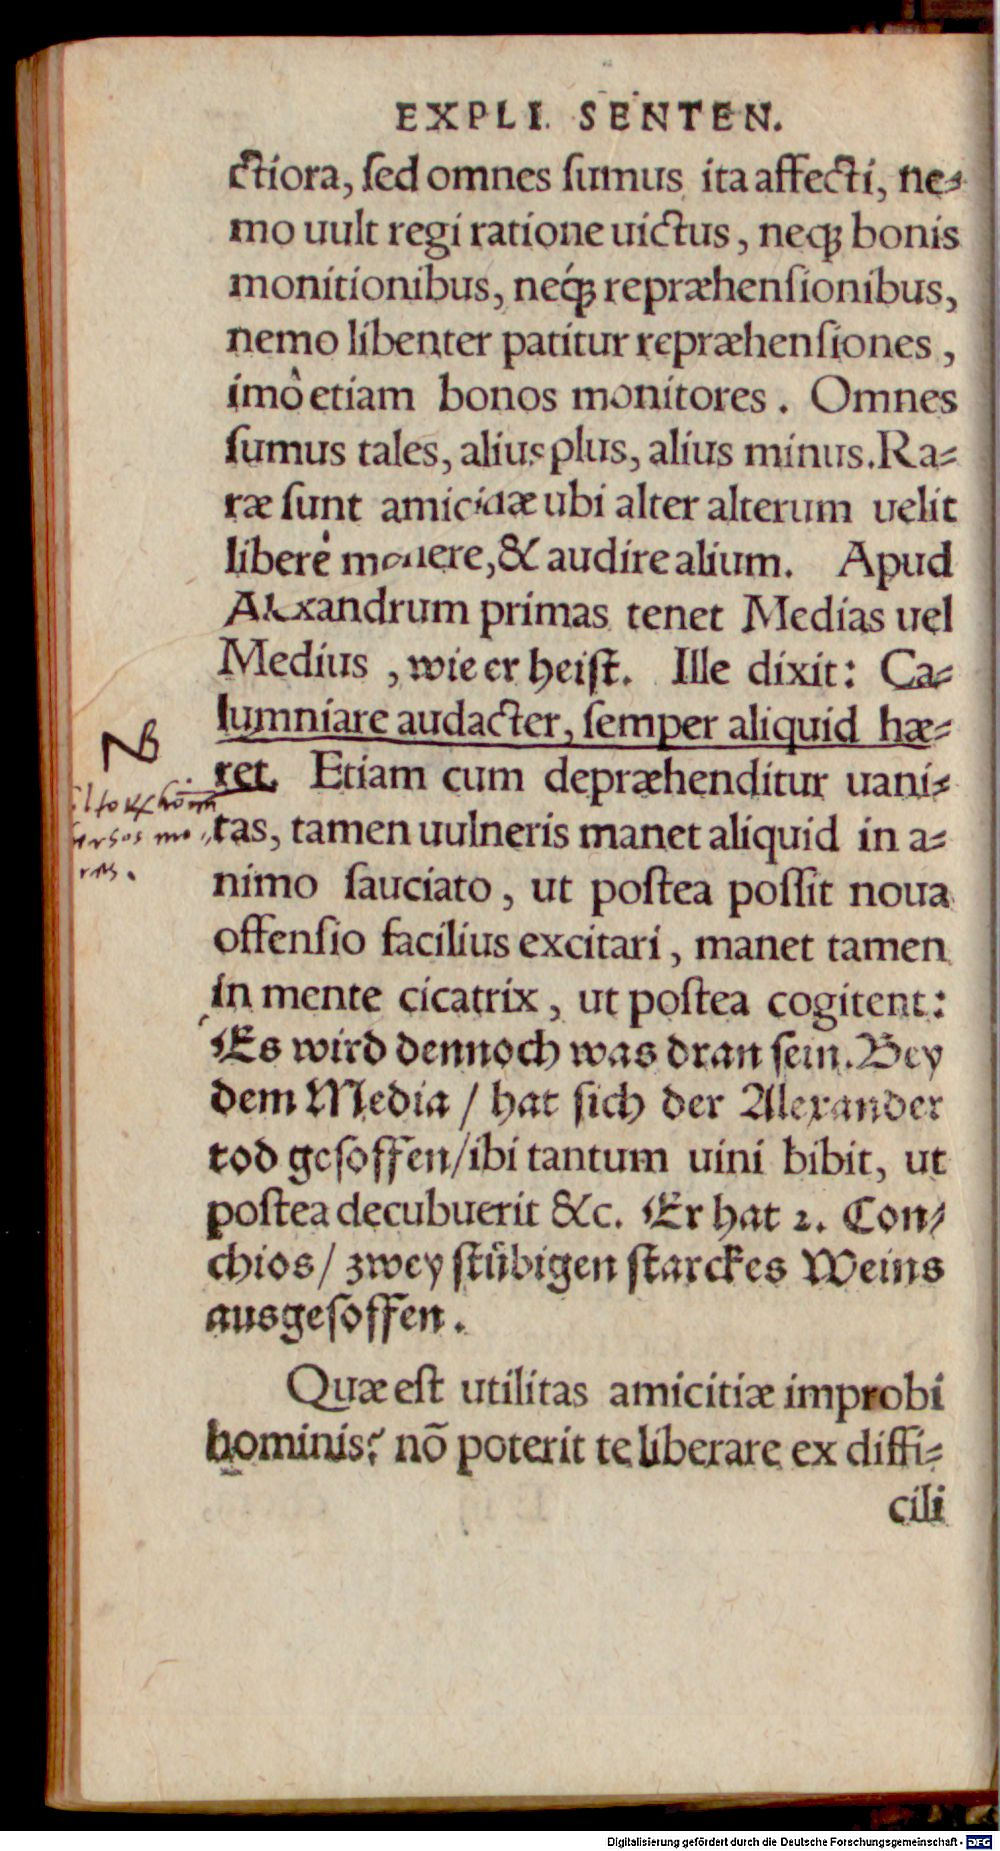 EXPLI. SENTEN.
ctiora, ſed omnes ſumus ita affecti, ne-
mo uult regi ratione uictus, neqꝫ bonis
monitionibus, neqꝫ repræhenſionibus,
nemo libenter patitur repræhenſiones,
imò etiam bonos monitores. Omnes
ſumus tales, alius plus, alius minus. Ra-
ræ ſunt amicitiæ ubi alter alterum uelit
liberè monere, & audire alium. Apud
Alexandrum primas tenet Medias uel
Medius, wie er heiſt. Ille dixit: Ca-
lumniare audacter, ſemper aliquid hæ-
ret. Etiam cum depræhenditur uani-
NB
tas, tamen uulneris manet aliquid in a-
nimo ſauciato, ut poſtea poſſit noua
offenſio facilius excitari, manet tamen
in mente cicatrix, ut poſtea cogitent:
Es wird dennoch was dran ſein. Bey
dem Media / hat ſich der Alexander
tod geſoffen / ibi tantum uini bibit, ut
poſtea decubuerit &c. Er hat 2. Con/
chios / zwey ſtübigen ſtarckes Weins
ausgeſoffen.
Quæ eſt utilitas amicitiæ improbi
hominis? nõ poterit te liberare ex diffi-
cili
Digitalisierung gefördert durch die Deutsche Forschungsgemeinschaft - DFG